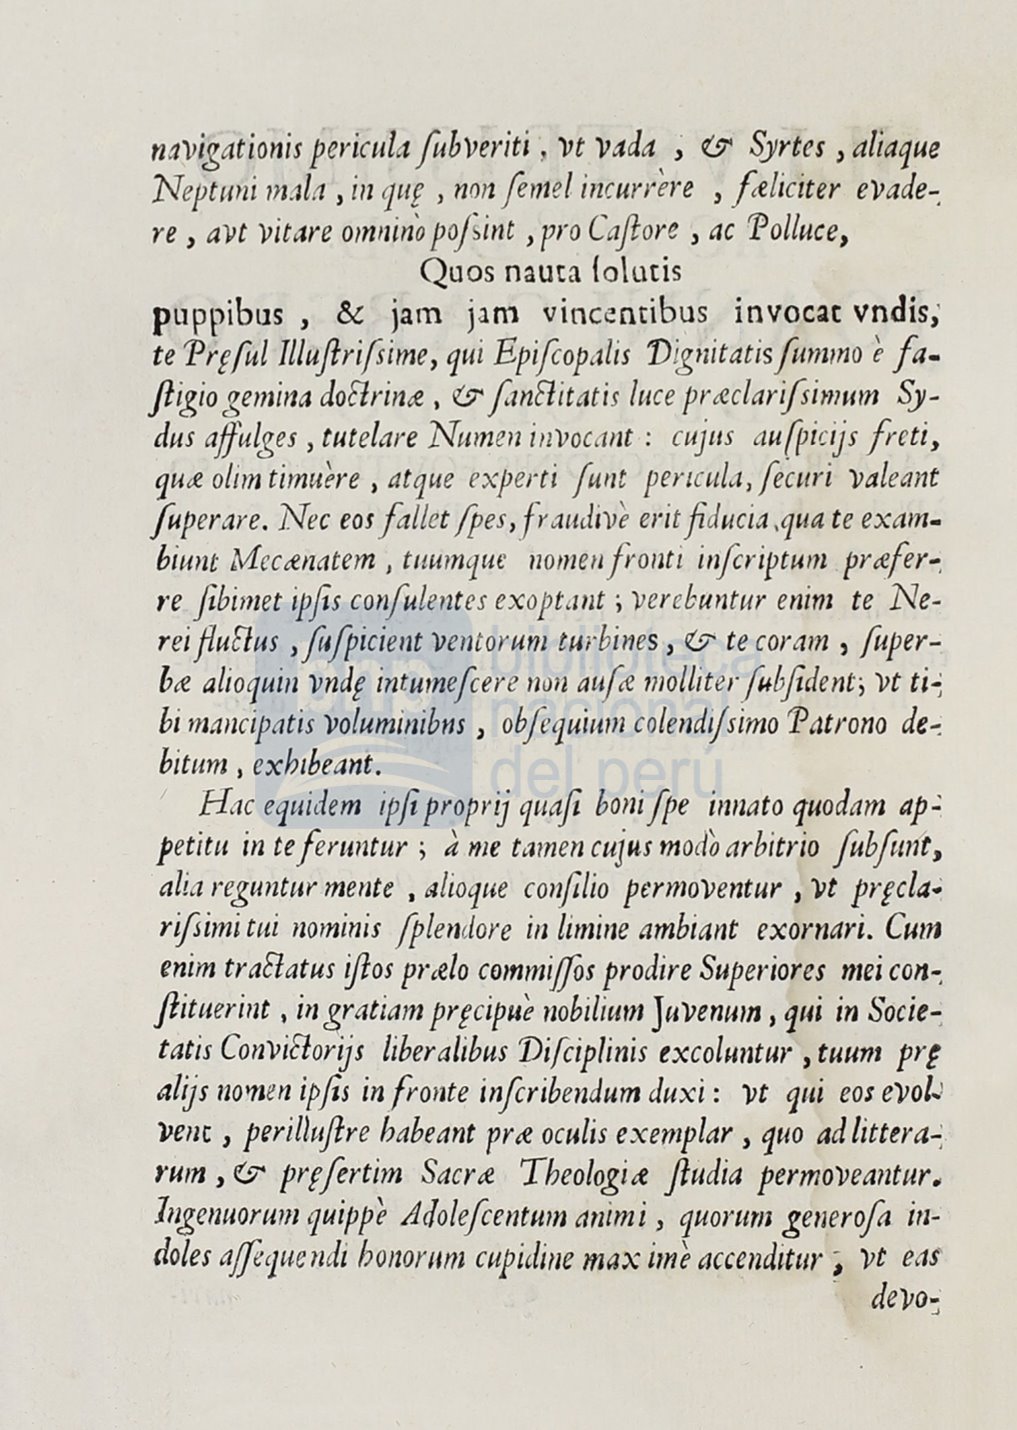 navigationis pericula ſubveriti, vt vada, & Syrtes, aliaque
Neptuni mala, in quę, non ſemel incurrère, fæliciter evade-
re, avt vitare omninò poſsint, pro Caſtore, ac Polluce,
Quos nauta ſolutis
puppibus, & jam jam vincentibus invocat vndis,
te Pręſul Illuſtriſsime, qui Epiſcopalis Dignitatis ſummo è fa-
ſtigio gemina doctrinæ, & ſanctitatis luce præclariſsimum Sy-
dus affulges, tutelare Numen invocant: cujus auſpicijs freti,
quæ olim timuère, atque experti ſunt pericula, ſecuri valeant
ſuperare. Nec eos fallet ſpes, fraudivè erit fiducia, qua te exam-
biunt Mecænatem, tuumque nomen fronti inſcriptum præfer-
re ſibimet ipſis conſulentes exoptant; verebuntur enim te Ne-
rei fluctus, ſuſpicient ventorum turbines, & te coram, ſuper-
bæ alioquin vndę intumeſcere non auſæ molliter ſubſident; vt ti-
bi mancipatis voluminibns, obſequium colendiſsimo Patrono de-
bitum, exhibeant.
Hac equidem ipſi proprij quaſi boni ſpe innato quodam ap-
petitu in te feruntur; à me tamen cujus modò arbitrio ſubſunt,
alia reguntur mente, alioque conſilio permoventur, vt pręcla-
riſsimi tui nominis ſplendore in limine ambiant exornari. Cum
enim tractatus iſtos prælo commiſſos prodire Superiores mei con-
ſtituerint, in gratiam pręcipuè nobilium Juvenum, qui in Socie-
tatis Convictorijs liberalibus Diſciplinis excoluntur, tuum prę
alijs nomen ipſis in fronte inſcribendum duxi: vt qui eos evol-
vent, perilluſtre habeant præ oculis exemplar, quo ad littera-
rum, & pręſertim Sacræ Theologiæ ſtudia permoveantur.
Ingenuorum quippè Adoleſcentum animi, quorum generoſa in-
doles aſſequendi honorum cupidine maximè accenditur, vt eas
devo-
bnp biblioteca
nacional
del perú